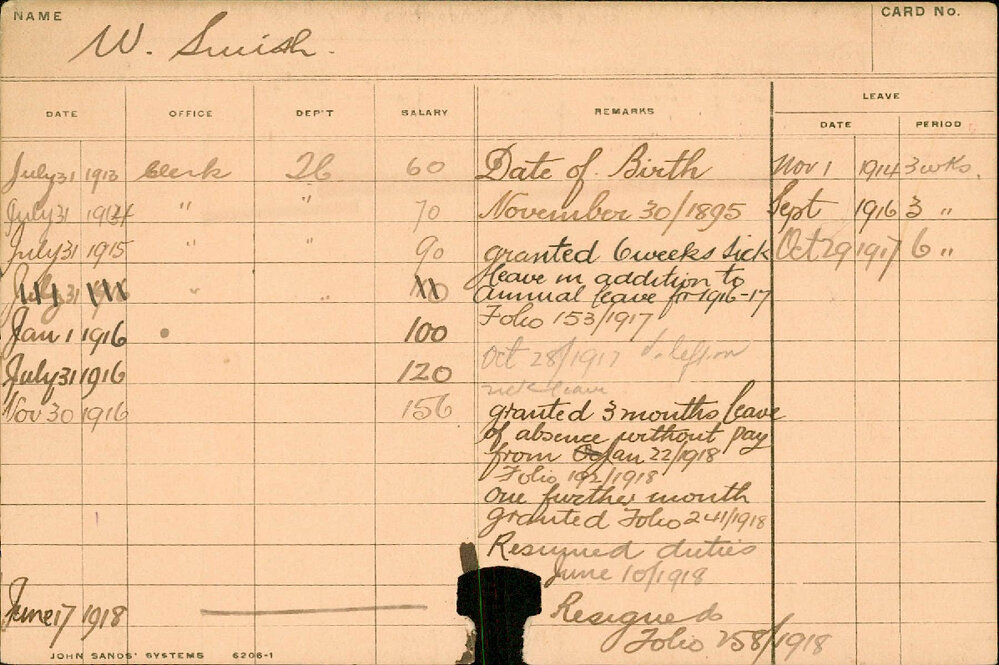 NAME
W. Smith.
CARD No.
DATE OFFICE DEP'T SALARY REMARKS LEAVE
DATE PERIOD
July 31 1913 Clerk 26 60 Date of Birth Nov 1 1914 3 wks.
July 31 1914 " " 70 November 30/1895 Sept 1916 3 "
July 31 1915 " " 90 granted 6 weeks sick Oct 29 1917 6 "
July 31 " " leave in addition to
annual leave fr 1916-17
Jan 1 1916 100 Folio 153/1917
July 31 1916 120 Oct 28/1917 left on
sick leave
Nov 30 1916 156 granted 3 months leave
of absence without pay
from Jan 22/1918
Folio 192/1918
one further month
granted Folio 241/1918
Resumed duties
June 10/1918
June 17 1918 Resigned
Folio 258/1918
JOHN SANDS' SYSTEMS 6206-1